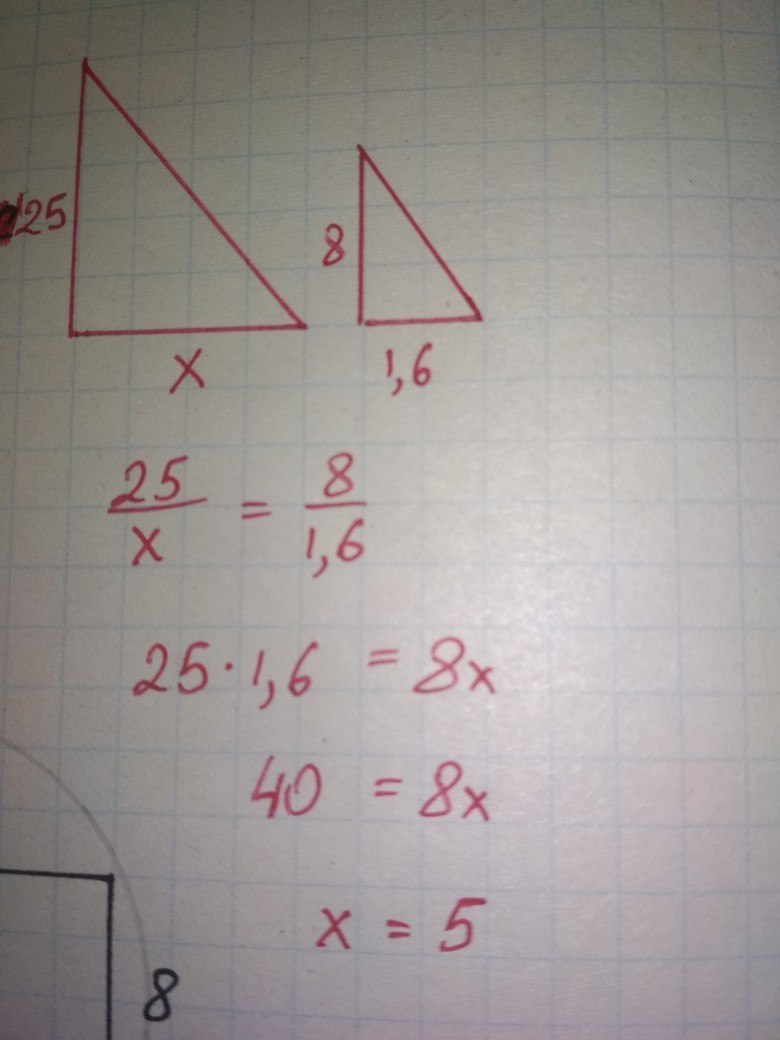 25
8
x
1,6
25/x = 8/1,6
25·1,6 = 8x
40 = 8x
x = 5
8